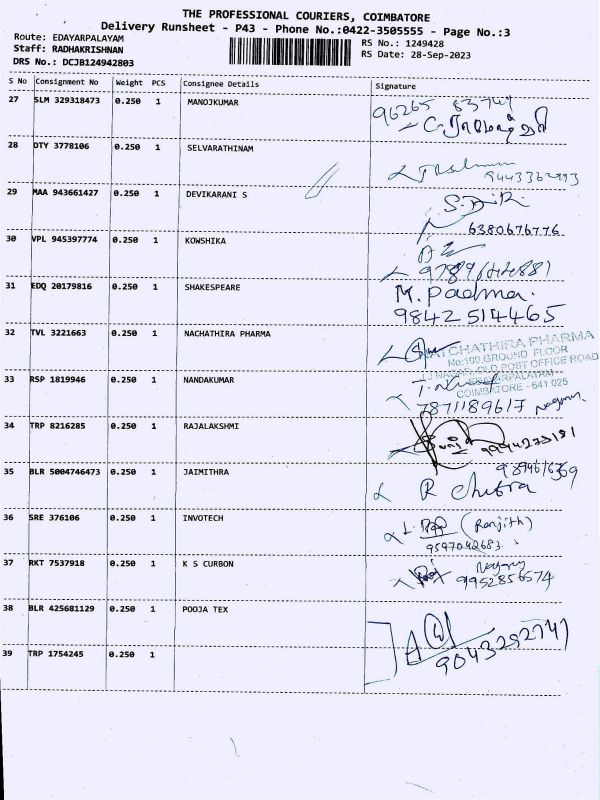 THE PROFESSIONAL COURIERS, COIMBATORE
Delivery Runsheet - P43 - Phone No.:0422-3505555 - Page No.:3
Route: EDAYARPALAYAM RS No.: 1249428
Staff: RADHAKRISHNAN RS Date: 28-Sep-2023
DRS No.: DCJB124942803
S No Consignment No Weight PCS Consignee Details Signature
27 SLM 329318473 0.250 1 MANOJKUMAR
28 OTY 3778106 0.250 1 SELVARATHINAM
29 MAA 943661427 0.250 1 DEVIKARANI S
6380676776
30 VPL 945397774 0.250 1 KOWSHIKA
31 EDQ 20179816 0.250 1 SHAKESPEARE M. Padma.
9842514465
32 TVL 3221663 0.250 1 NACHATHIRA PHARMA
NATCHATHIRA PHARMA
No:100 GROUND FLOOR
OLD POST OFFICE ROAD
COIMBATORE - 641 025
33 RSP 1819946 0.250 1 NANDAKUMAR
7871189617
34 TRP 8216285 0.250 1 RAJALAKSHMI
35 BLR 5004746473 0.250 1 JAIMITHRA
R Chitra
36 SRE 376106 0.250 1 INVOTECH (Ranjith)
9597042683
37 RKT 7537918 0.250 1 K S CURBON
9952856574
38 BLR 425681129 0.250 1 POOJA TEX
9043292741
39 TRP 1754245 0.250 1